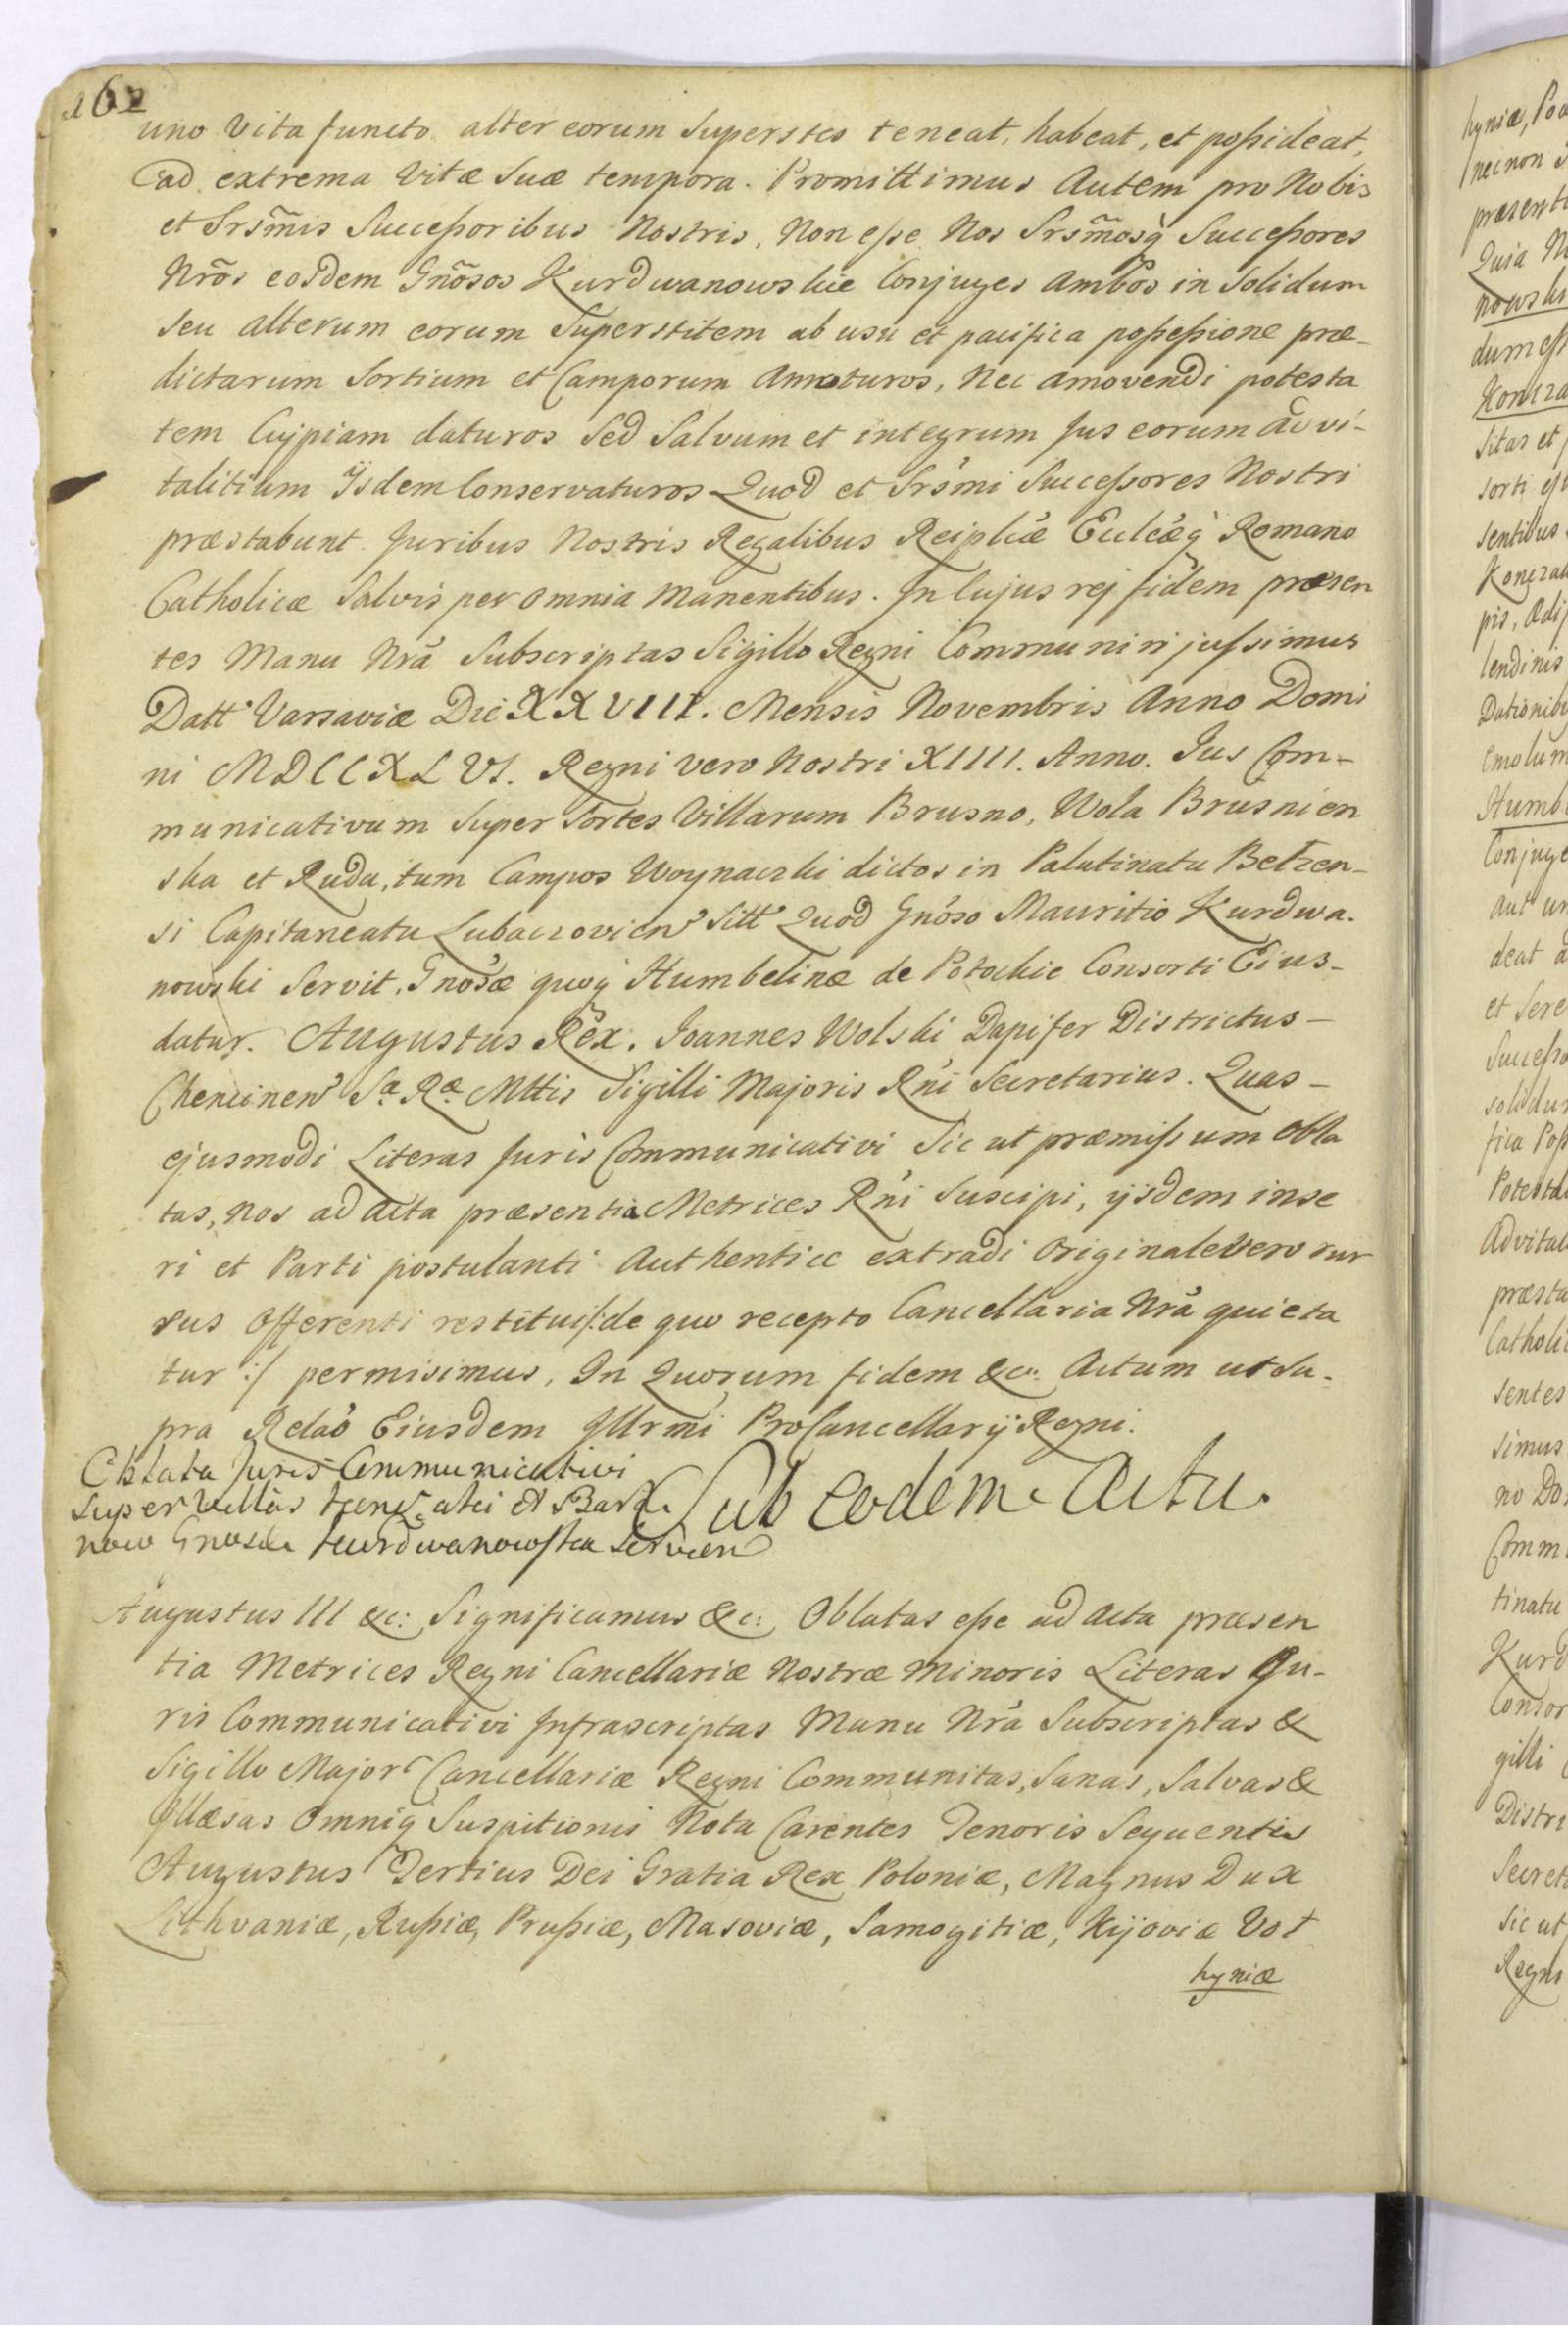 162
uno Vita functo alter eorum Superstes teneat, habeat, et poßideat,
ad extrema Vitæ Suæ tempora. Promittimus Autem pro Nobis
et Srsm̃is Succeßoribus Nostris, Non eße Nos Srsm̃osq̀ Succeßores
Nrõs eosdem Gnõsos Kurdwanowskie Conjuges Ambos in Solidum
seu alterum eorum Superstitem ab usu et pacifica poßeßione præ-
dictarum Sortium et Camporum Amoturos, Nec amovendi potesta
tem Cuipiam daturos Sed Salvum et integrum Jus eorum advi-
talitium Ijsdem Conservaturos Quod et Srs'mi Succeßores Nostri
præstabunt. Juribus Nostris Regalibus Reiplĉæ Ecclĉæq̀ Romano
Catholicæ Salvis per omnia Manentibus. In Cujus rej fidem præsen
tes Manu Nrã Subscriptas Sigillo Regni Communiri jußimus
Datt' Varsaviæ Die XXVIII. Mensis Novembris Anno Domi
ni MDCCXLVI. Regni vero Nostri XIIII. Anno. Jus Com-
municativum super Sortes Villarum Brusno, Wola Brusnien
ska et Ruda, tum Campos Woynaczki dictos in Palatinatu Belzen-
si Capitaneatu Lubaczovien' Sitt' Quod Gnõso Mauritio Kurdwa-
nowski Servit. Gnosæ quoq̀ Humbelinæ de Potockie Consorti Eius-
datur. Augustus Rex. Joannes Wolski Dapifer Districtus-
Chencinen' Sæ Ræ Mttis Sigilli Majoris Rñi Secretarius. Quas-
ejusmodi Literas Juris Communicativi Sic ut præmißum obla
tas, nos ad acta præsentia Metrices Rñi Suscipi, ijsdem inse
ri et Parti postulanti Authentice extradi originale Vero rur
sus Offerenti restitui /: de quo recepto Cancellaria Nrã quieta
tur :/ permisimus, In Quorum fidem &c: Actum ut Su-
pra Relaõ Eiusdem Illrm̃i ProCancellarij Regni.
Oblata Juris Communicativi
super Villas
now Gnosæ Kurdwanowska Servien
Sub Eodem Actu.
Augustus III &c: Significamus &c: Oblatas eße ad acta præsen
tia Metrices Regni Cancellariæ Nostræ Minoris Literas Ju-
ris Communicativi Infrascriptas Manu Nrã Subscriptas &
Sigillo Majori Cancellariæ Regni Communitas, Sanas, Salvas &
Illæsas Omniq̀ Suspitionis Nota Carentes Tenoris Sequentis
Augustus Tertius Dei Gratia Rex Poloniæ, Magnus Dux
Lithvaniæ, Rußiæ, Prußiæ, Masoviæ, Samogitiæ, Kijoviæ Vol
hyniæ